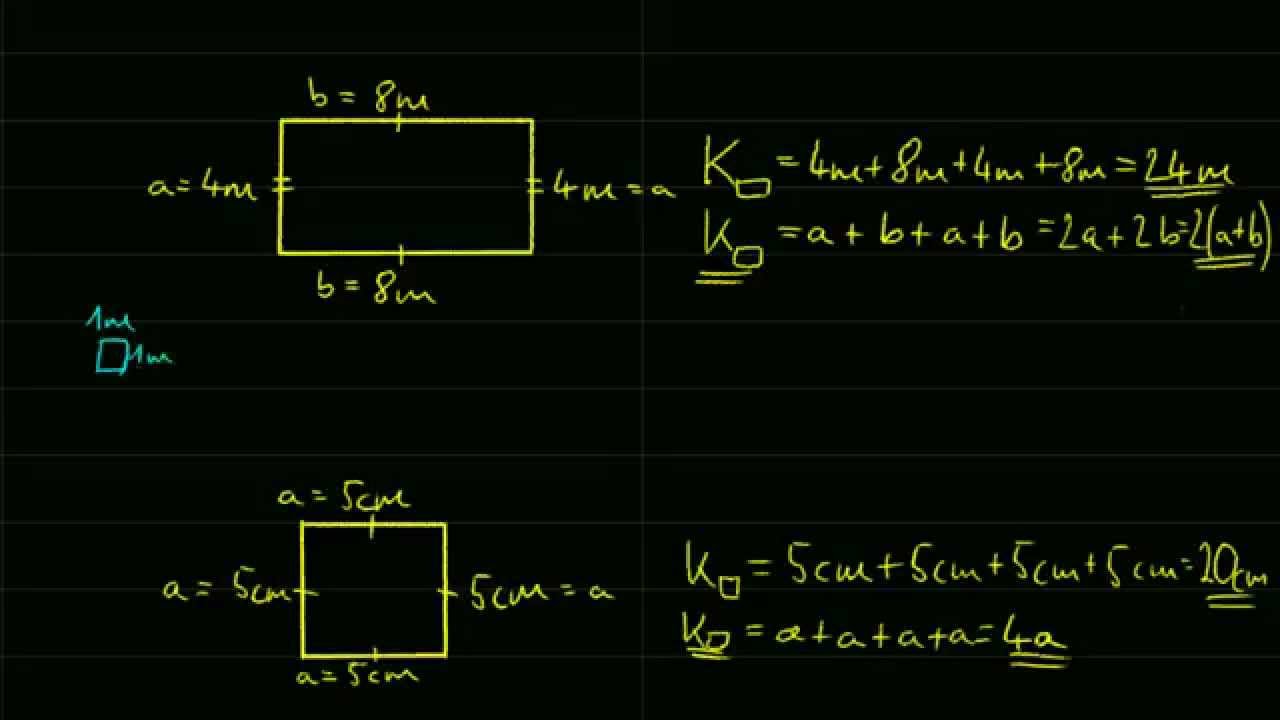 b = 8m
a = 4m
4m = a
b = 8m
K▭ = 4m + 8m + 4m + 8m = 24m
K▭ = a + b + a + b = 2a + 2b = 2(a+b)
1m
1m
a = 5cm
a = 5cm
5cm = a
a = 5cm
K□ = 5cm + 5cm + 5cm + 5cm = 20cm
K□ = a + a + a + a = 4a